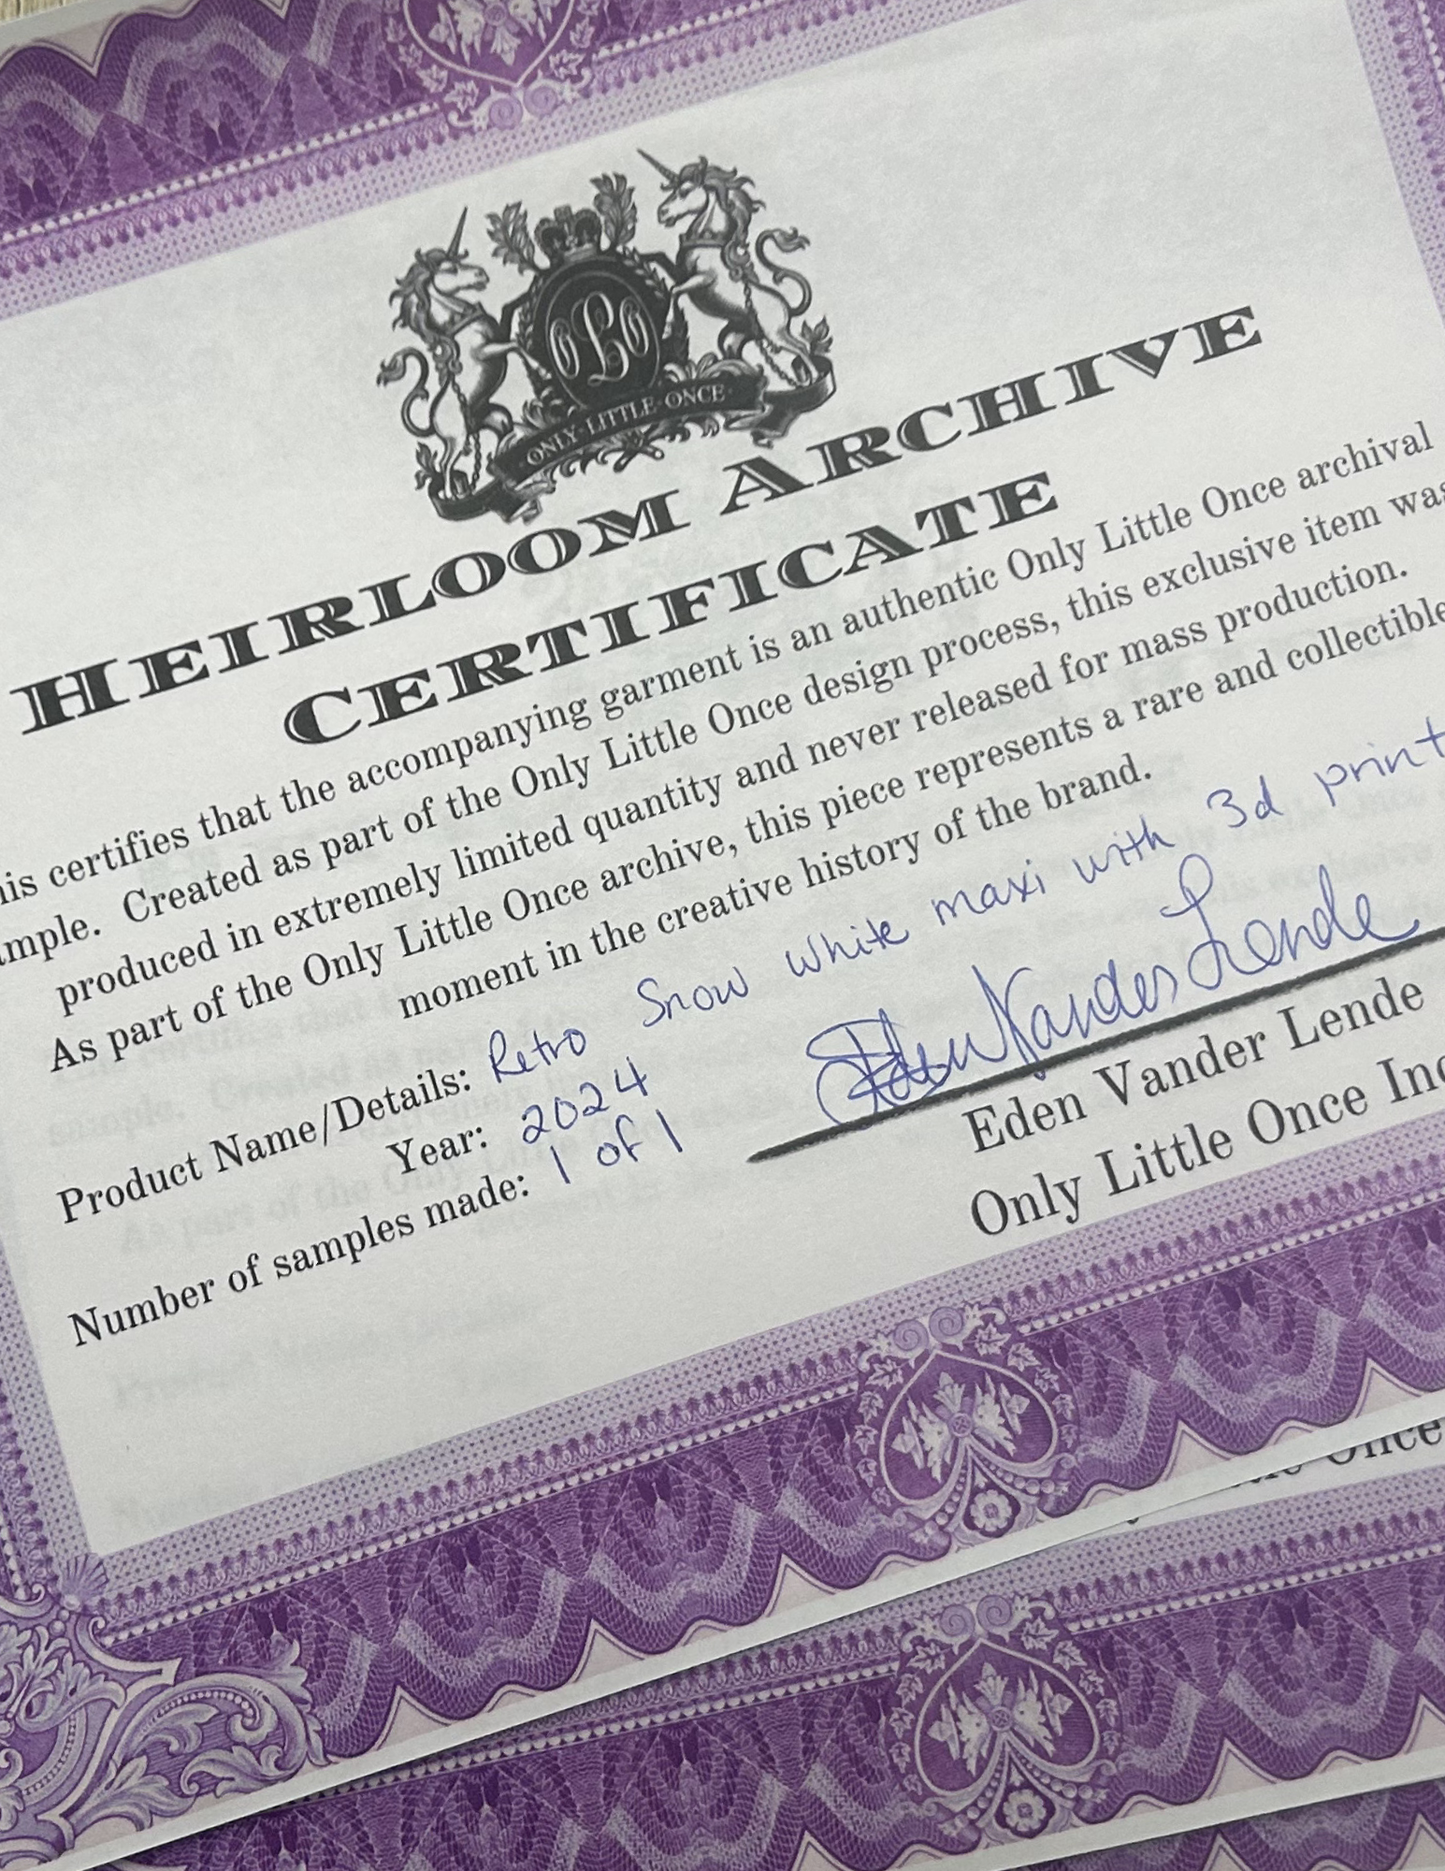 OLO
ONLY·LITTLE·ONCE
HEIRLOOM ARCHIVE
CERTIFICATE
his certifies that the accompanying garment is an authentic Only Little Once archival
mple. Created as part of the Only Little Once design process, this exclusive item was
produced in extremely limited quantity and never released for mass production.
As part of the Only Little Once archive, this piece represents a rare and collectible
moment in the creative history of the brand.
Product Name/Details: Retro Snow White maxi with 3d print
Year: 2024
Number of samples made: 1 of 1
Eden Vander Lende
Eden Vander Lende
Only Little Once Inc
Once